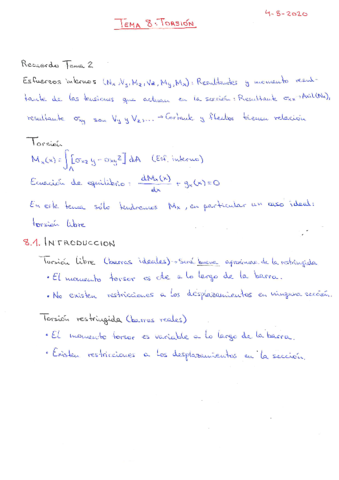 4-5-2020
TEMA 8: TORSIÓN
Recuerdo Tema 2
Esfuerzos internos (Nx, Vy, Mz, Vz, My, Mx): Resultantes y momento resul-
tante de las tensiones que actúan en la sección: Resultante σxx: Axil (Nx),
resultante σxy son Vy y Vz,... → Cortante y flector tienen relación
Torsión
Mx(x) = ∫A [σxz y - σxy z] dA (Esf. interno)
Ecuación de equilibrio: dMx(x)/dx + qx(x) = 0
En este tema sólo tendremos Mx, en particular un caso ideal:
torsión libre
8.1. INTRODUCCIÓN
Torsión libre (barras ideales) → Será buena aproximac. de la restringida
• El momento torsor es cte a lo largo de la barra.
• No existen restricciones a los desplazamientos en ninguna sección.
Torsión restringida (barras reales)
• El momento torsor es variable a lo largo de la barra.
• Existen restricciones a los desplazamientos en la sección.